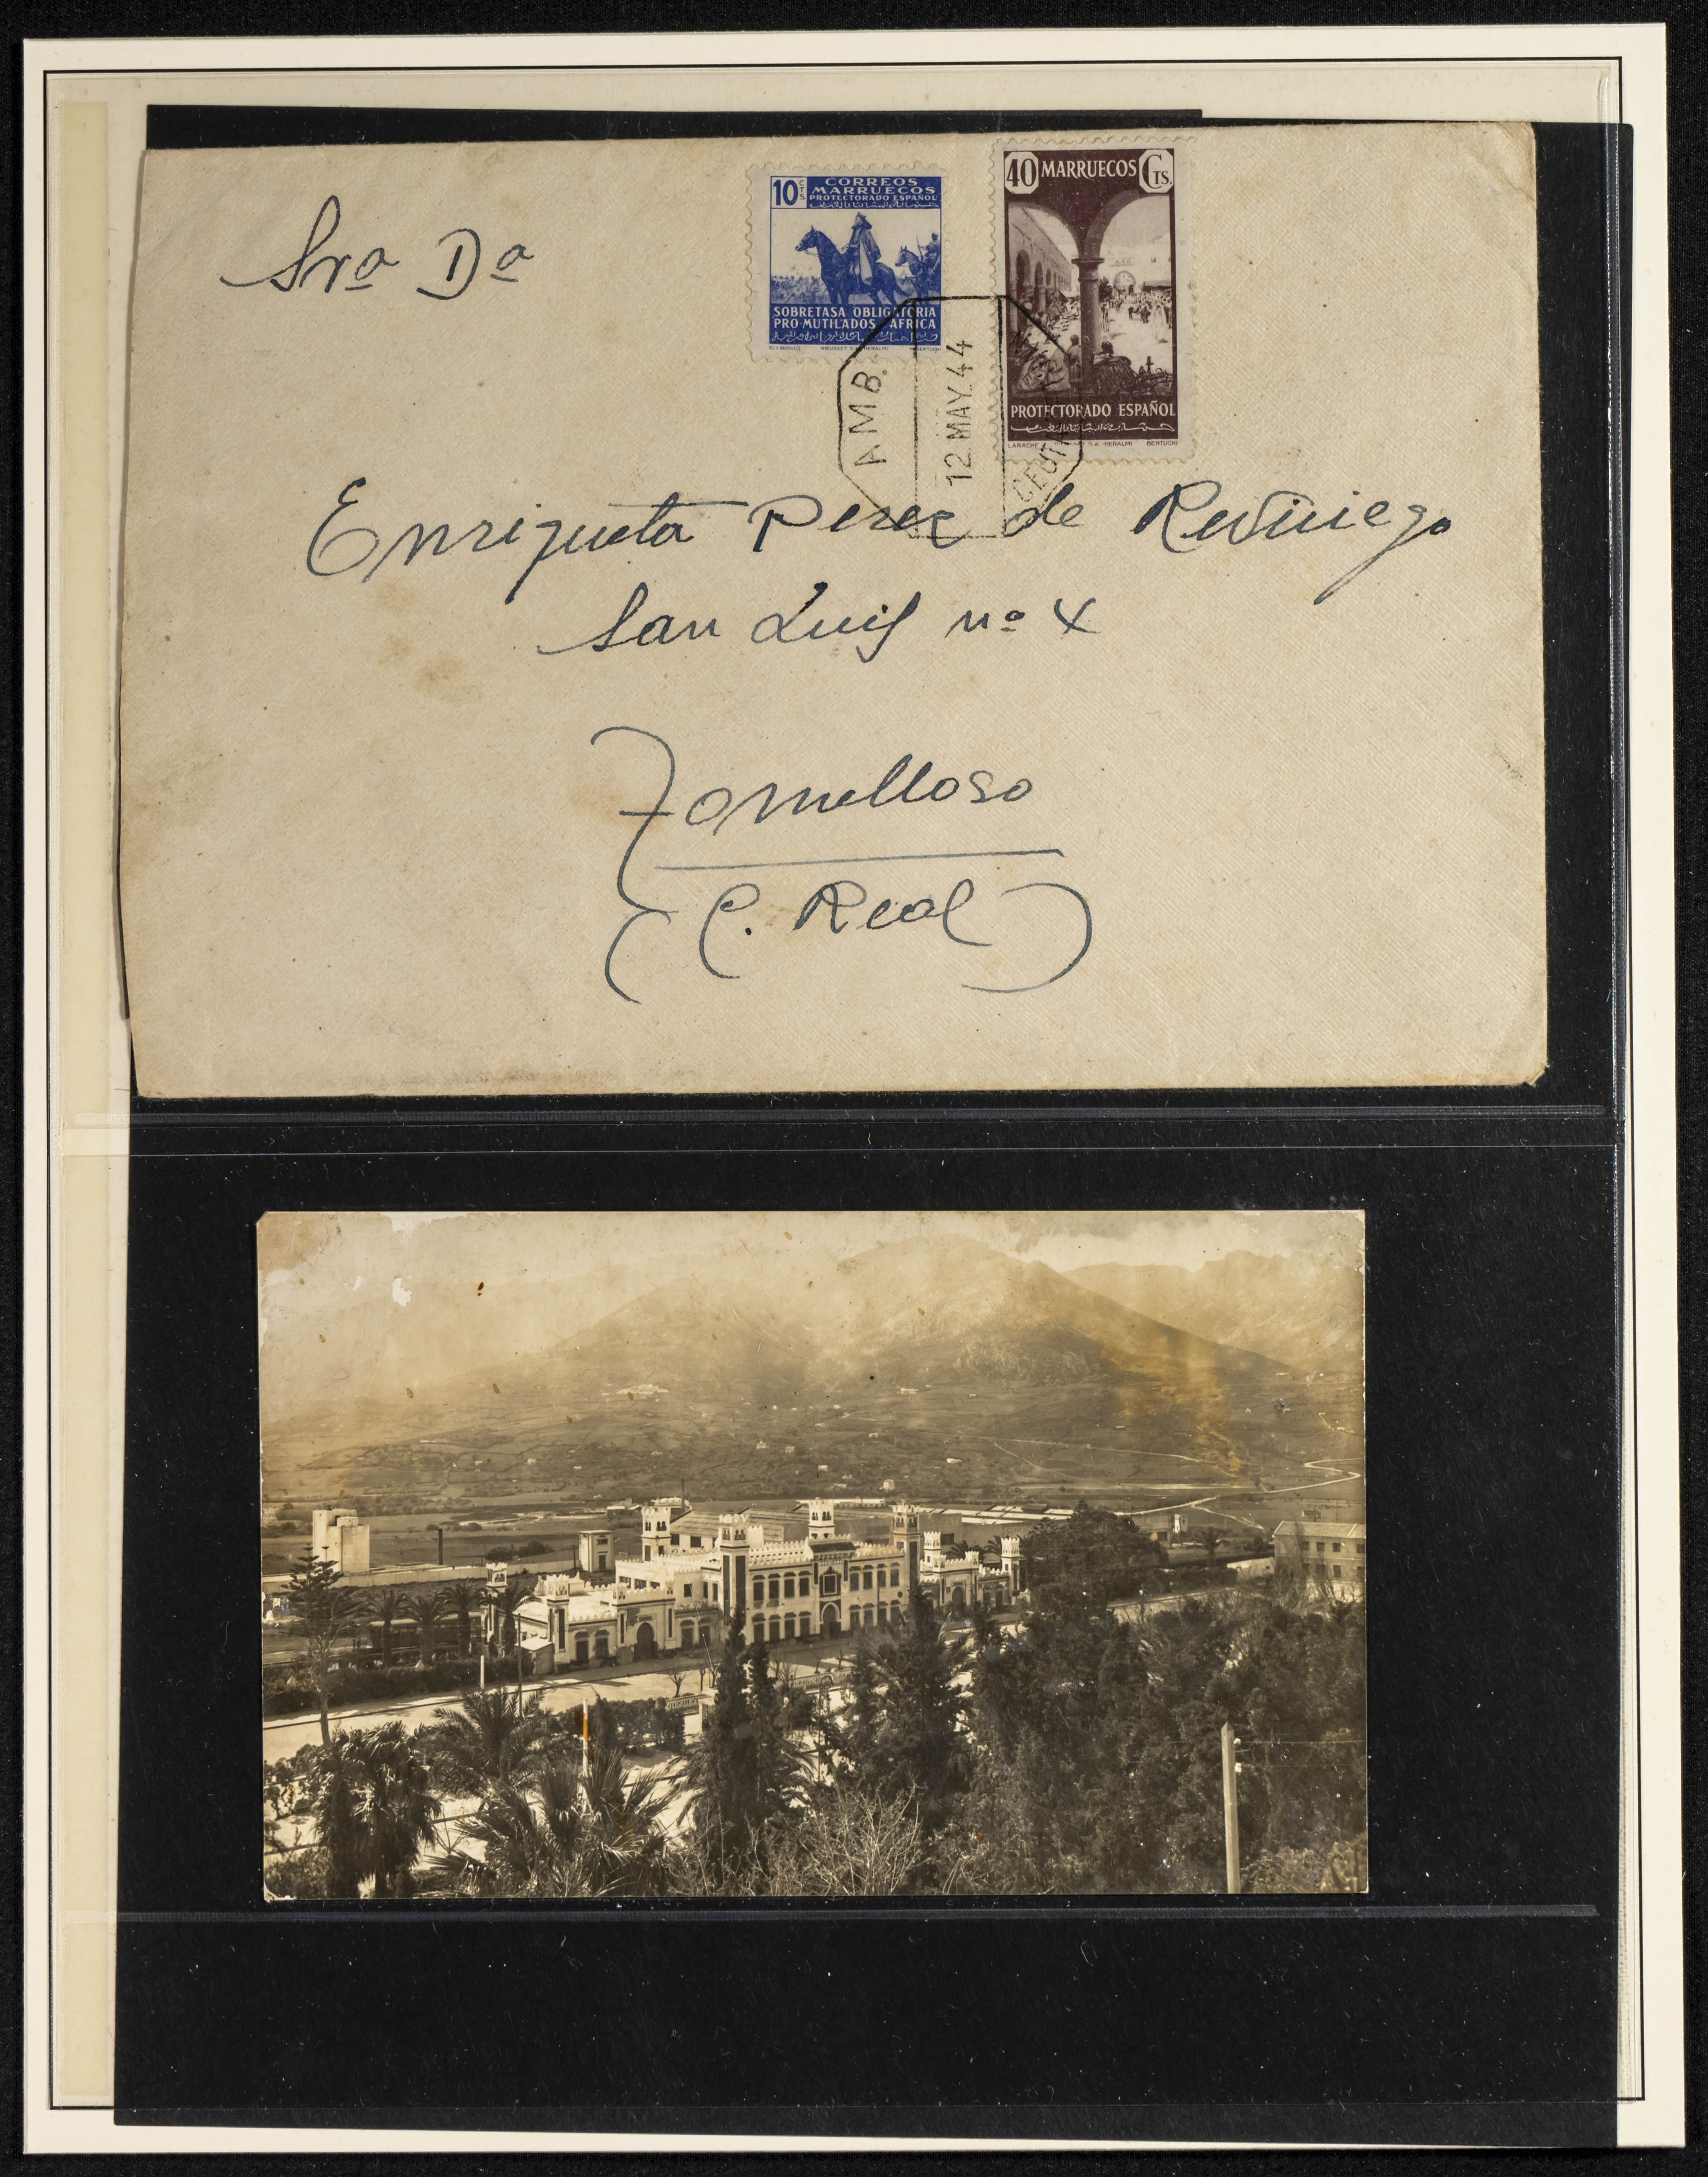 Sra Da
10 CTS
CORREOS
MARRUECOS
PROTECTORADO ESPAÑOL
SOBRETASA OBLIGATORIA
PRO-MUTILADOS AFRICA
40 MARRUECOS CTS.
PROTECTORADO ESPAÑOL
LARACHE S.A.-HERALMI BERTUCHI
AMB.
12.MAY.44
CEUTA
Enriqueta Perez de
San Luis nº 4
Tomelloso
(C. Real)